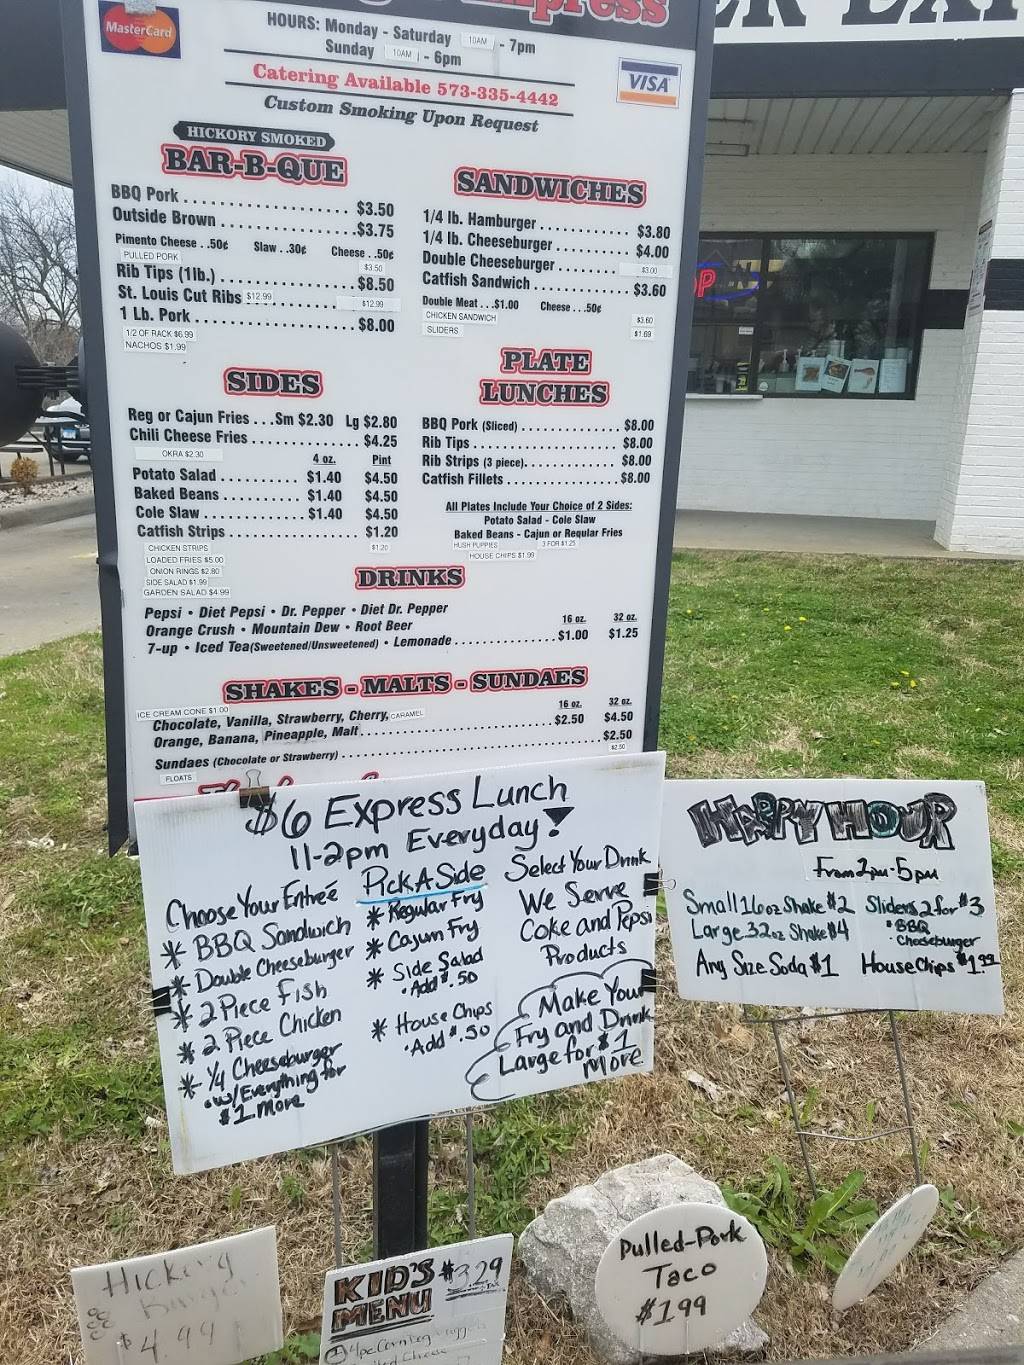 Express
MasterCard
HOURS: Monday - Saturday 10AM - 7pm
Sunday 10AM - 6pm
Catering Available 573-335-4442
Custom Smoking Upon Request
VISA
HICKORY SMOKED
BAR-B-QUE
BBQ Pork . . . . . . . . . . . . . . . . . . . $3.50
Outside Brown . . . . . . . . . . . . . . . $3.75
Pimento Cheese . .50¢ Slaw . .30¢ Cheese . .50¢
PULLED PORK $3.50
Rib Tips (1lb.) . . . . . . . . . . . . . . . $8.50
St. Louis Cut Ribs $12.99 $12.99
1 Lb. Pork . . . . . . . . . . . . . . . . . . $8.00
1/2 OF RACK $6.99
NACHOS $1.99
SANDWICHES
1/4 lb. Hamburger . . . . . . . . . . $3.80
1/4 lb. Cheeseburger . . . . . . . . . $4.00
Double Cheeseburger . . . . . . . . $3.00
Catfish Sandwich . . . . . . . . . . . . $3.60
Double Meat . . .$1.00 Cheese . . .50¢
CHICKEN SANDWICH $3.60
SLIDERS $1.69
SIDES
Reg or Cajun Fries . . . Sm $2.30 Lg $2.80
Chili Cheese Fries . . . . . . . . . . . . $4.25
OKRA $2.30
4 oz. Pint
Potato Salad . . . . . . . . . . $1.40 $4.50
Baked Beans . . . . . . . . . . $1.40 $4.50
Cole Slaw . . . . . . . . . . . . $1.40 $4.50
Catfish Strips . . . . . . . . . . . . . . . . $1.20
CHICKEN STRIPS $1.20
LOADED FRIES $5.00
ONION RINGS $2.80
SIDE SALAD $1.99
GARDEN SALAD $4.99
PLATE
LUNCHES
BBQ Pork (Sliced) . . . . . . . . . . . . . $8.00
Rib Tips . . . . . . . . . . . . . . . . . . . $8.00
Rib Strips (3 piece). . . . . . . . . . . . $8.00
Catfish Fillets . . . . . . . . . . . . . . . $8.00
All Plates Include Your Choice of 2 Sides:
Potato Salad - Cole Slaw
Baked Beans - Cajun or Regular Fries
HUSH PUPPIES 3 FOR $1.25
HOUSE CHIPS $1.99
DRINKS
Pepsi • Diet Pepsi • Dr. Pepper • Diet Dr. Pepper
Orange Crush • Mountain Dew • Root Beer 16 oz. 32 oz.
7-up • Iced Tea(Sweetened/Unsweetened) • Lemonade . . . . . . . . . . . . . $1.00 $1.25
SHAKES - MALTS - SUNDAES
ICE CREAM CONE $1.00
16 oz. 32 oz.
Chocolate, Vanilla, Strawberry, Cherry, CARAMEL
Orange, Banana, Pineapple, Malt . . . . . . . . . . . . . . . . . . . $2.50 $4.50
Sundaes (Chocolate or Strawberry) . . . . . . . . . . . . . . . . . . . . . . . . . $2.50
FLOATS $2.50
$6 Express Lunch
11-2pm Everyday!
Choose Your Entreé
* BBQ Sandwich
* Double Cheeseburger
* 2 Piece Fish
* 2 Piece Chicken
* 1/4 Cheeseburger
• w/ Everything for
$1 More
Pick A Side
* Regular Fry
* Cajun Fry
* Side Salad
• Add $.50
* House Chips
• Add $.50
Select Your Drink
We Serve
Coke and Pepsi
Products
Make Your
Fry and Drink
Large for $1
More
HAPPY HOUR
From 2pm-5pm
Small 16oz Shake $2
Large 32oz Shake $4
Any Size Soda $1
Sliders 2 for $3
• BBQ
• Cheeseburger
House Chips $1.99
Hickory
$4.99
KID'S $3.29
MENU
Pulled-Pork
Taco
$1.99